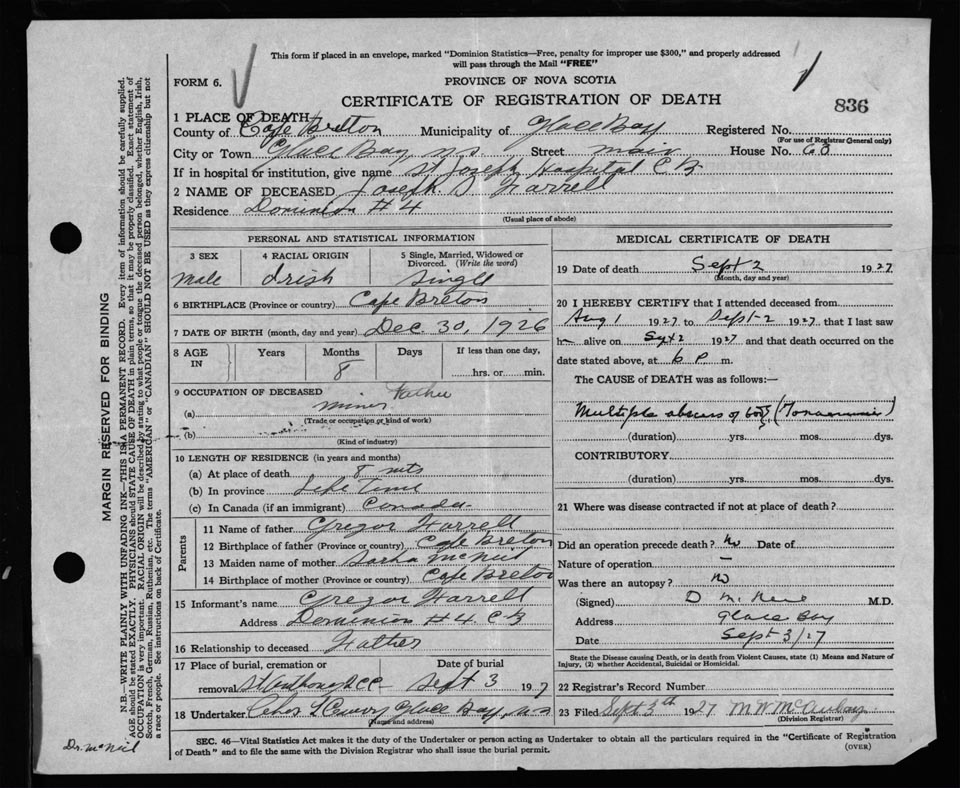 This form if placed in an envelope, marked "Dominion Statistics—Free, penalty for improper use $300," and properly addressed
will pass through the Mail "FREE"
FORM 6.
PROVINCE OF NOVA SCOTIA
CERTIFICATE OF REGISTRATION OF DEATH
836
1 PLACE OF DEATH
County of Cape Breton Municipality of Glace Bay Registered No.
(For use of Registrar General only)
City or Town Glace Bay, N.S. Street Main House No. 60
If in hospital or institution, give name St Joseph Hospital C B
2 NAME OF DECEASED Joseph D Farrell
Residence Dominion #4
(Usual place of abode)
PERSONAL AND STATISTICAL INFORMATION
3 SEX 4 RACIAL ORIGIN 5 Single, Married, Widowed or
Divorced. (Write the word)
Male Irish Single
6 BIRTHPLACE (Province or country) Cape Breton
7 DATE OF BIRTH (month, day and year) Dec. 30, 1926
8 AGE IN Years Months Days If less than one day,
8 hrs. or min.
9 OCCUPATION OF DECEASED Father
(a) miner
(Trade or occupation or kind of work)
(b)
(Kind of industry)
10 LENGTH OF RESIDENCE (in years and months)
(a) At place of death 8 mts
(b) In province Life Time
(c) In Canada (if an immigrant) Canada
Parents
11 Name of father Gregor Farrell
12 Birthplace of father (Province or country) Cape Breton
13 Maiden name of mother McNeil
14 Birthplace of mother (Province or country) Cape Breton
15 Informant's name Gregor Farrell
Address Dominion #4 C B
16 Relationship to deceased Father
17 Place of burial, cremation or Date of burial
removal St Anthony Sept 3 1927
18 Undertaker Glace Bay, N.S
(Name and address)
MEDICAL CERTIFICATE OF DEATH
19 Date of death Sept 2 1927
(Month, day and year)
20 I HEREBY CERTIFY that I attended deceased from
Aug 1 1927 to Sept-2 1927 that I last saw
h alive on Sept 2 1927 and that death occurred on the
date stated above, at 6 P m.
The CAUSE of DEATH was as follows:—
Multiple abscess of body
(duration) yrs. mos. dys.
CONTRIBUTORY
(duration) yrs. mos. dys.
21 Where was disease contracted if not at place of death?
Did an operation precede death? No Date of
Nature of operation —
Was there an autopsy? No
(Signed) D McNeil M.D.
Address Glace Bay
Date Sept 3/27
State the Disease causing Death, or in death from Violent Causes, state (1) Means and Nature of
Injury, (2) whether Accidental, Suicidal or Homicidal.
22 Registrar's Record Number
23 Filed Sept 3th 1927
(Division Registrar)
SEC. 46—Vital Statistics Act makes it the duty of the Undertaker or person acting as Undertaker to obtain all the particulars required in the "Certificate of Registration
of Death" and to file the same with the Division Registrar who shall issue the burial permit.
(OVER)
MARGIN RESERVED FOR BINDING
N.B.—WRITE PLAINLY WITH UNFADING INK—THIS IS A PERMANENT RECORD. Every item of information should be carefully supplied.
AGE should be stated EXACTLY. PHYSICIANS should STATE CAUSE OF DEATH in plain terms, so that it may be properly classified. Exact statement of
OCCUPATION is very important. RACIAL ORIGIN will be described by stating to what people or tongue the deceased person belonged, whether English, Irish,
Scotch, French, German, Russian, Ruthenian, etc. The terms "AMERICAN" or "CANADIAN" SHOULD NOT BE USED as they express citizenship but not
a race or people. See instructions on back of Certificate.
Dr. McNeil